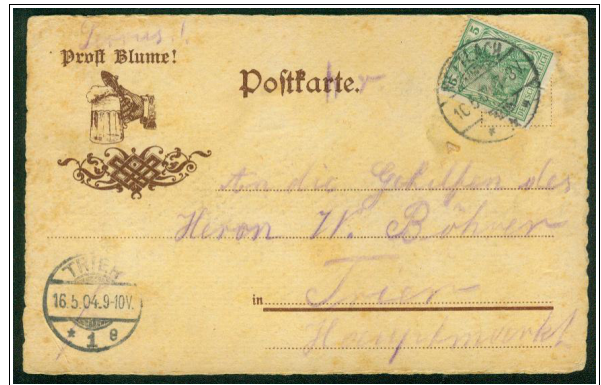 Prost Blume!
Postkarte.
5
An die Gehilfen des
Herrn W. Böhler
in Trier
Hauptmarkt
TRIER
16.5.04.9-10V.
* 1 e